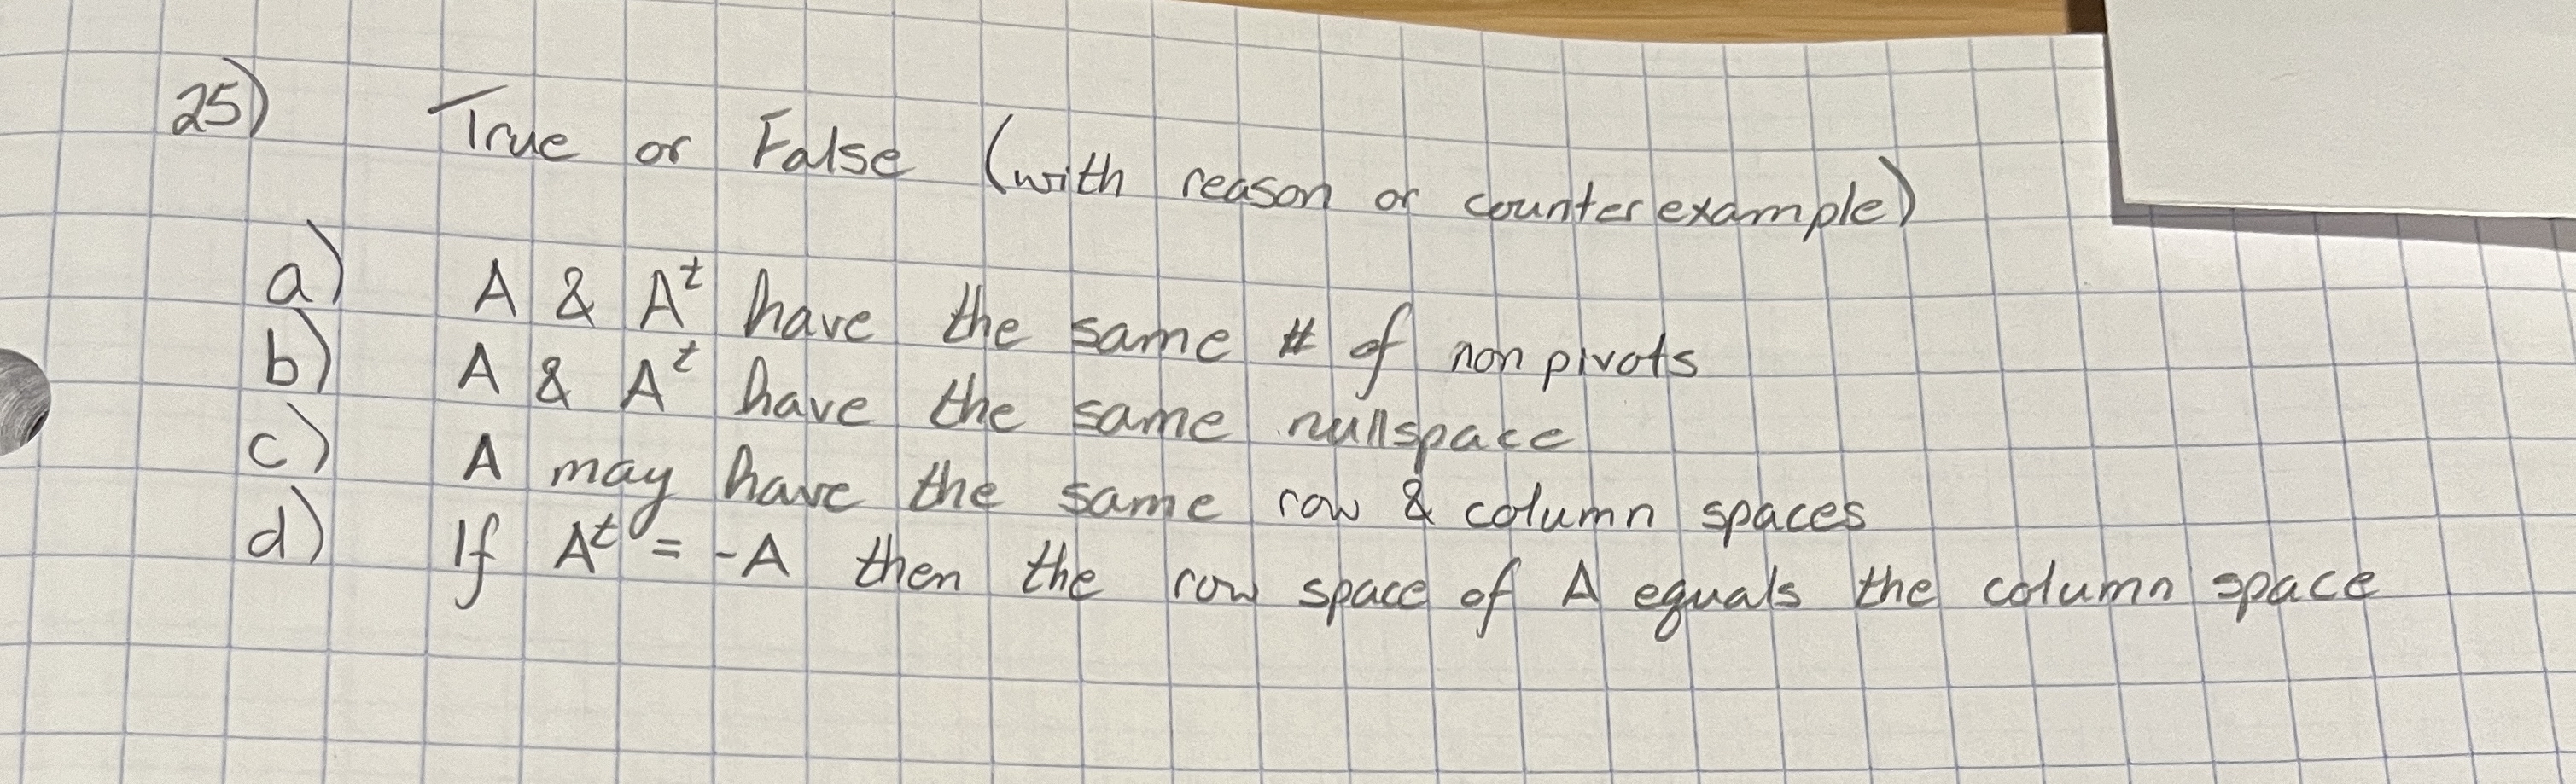 25) True or False (with reason or counterexample)
a) A & Aᵗ have the same # of nonpivots
b) A & Aᵗ have the same nullspace
c) A may have the same row & column spaces
d) If Aᵗ = -A then the row space of A equals the column space